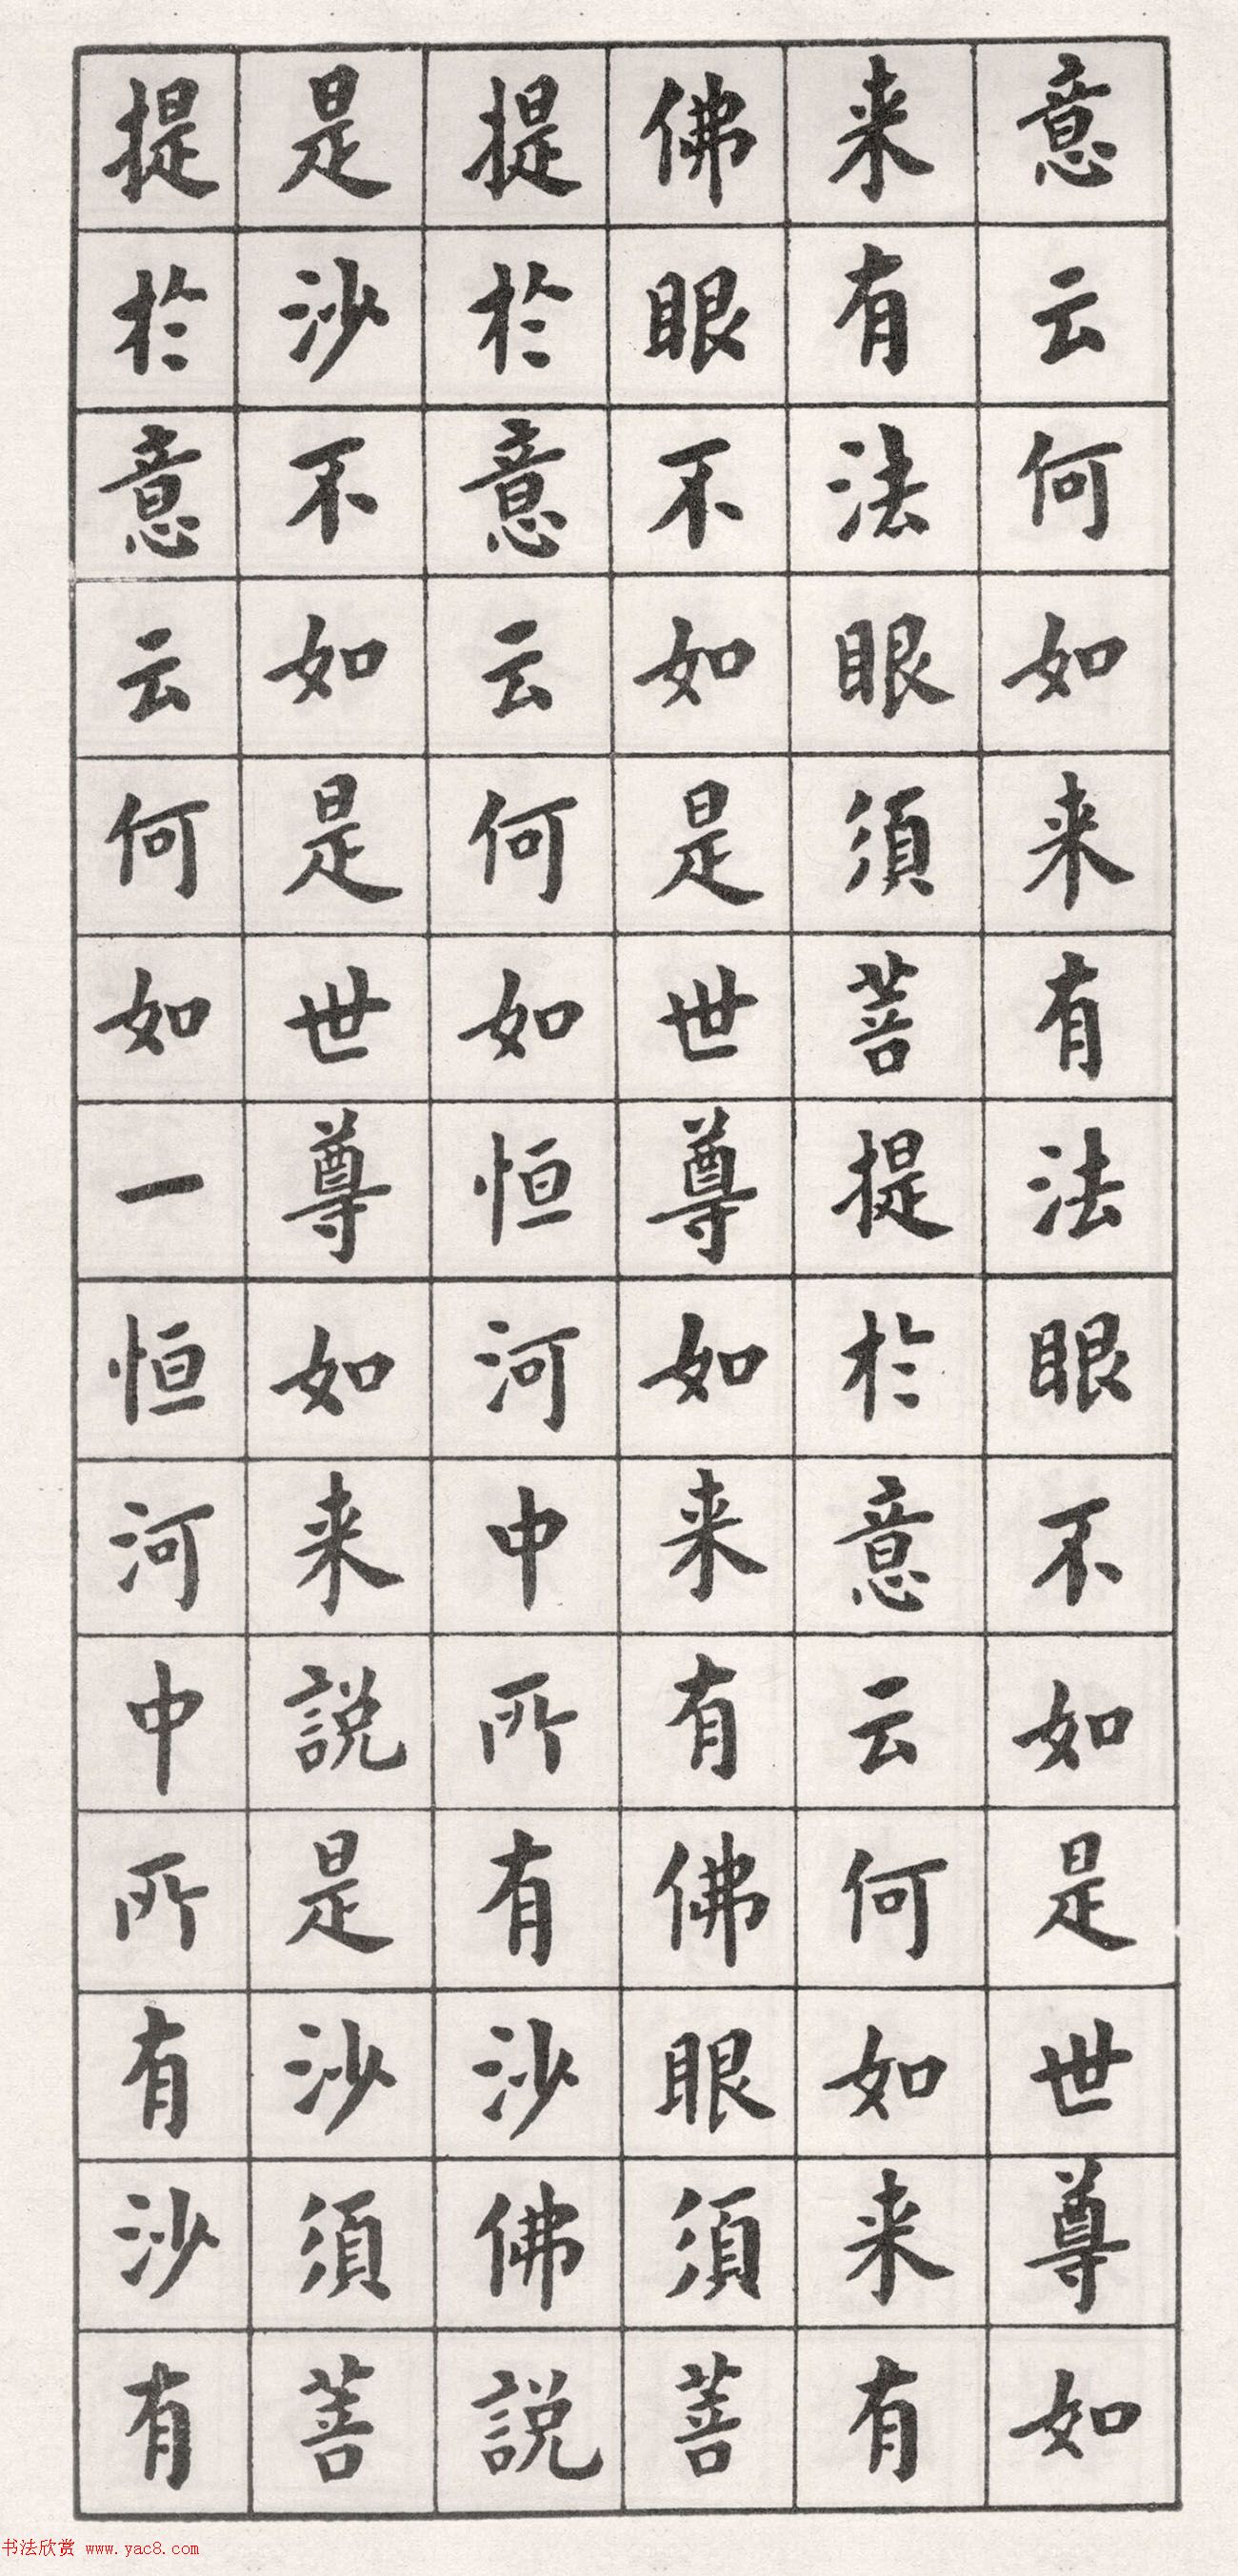 意云何如来有法眼不如是世尊如
来有法眼須菩提於意云何如来有
佛眼不如是世尊如来有佛眼須菩
提於意云何如恒河中所有沙佛説
是沙不如是世尊如来説是沙須菩
提於意云何如一恒河中所有沙有
书法欣赏 www.yac8.com